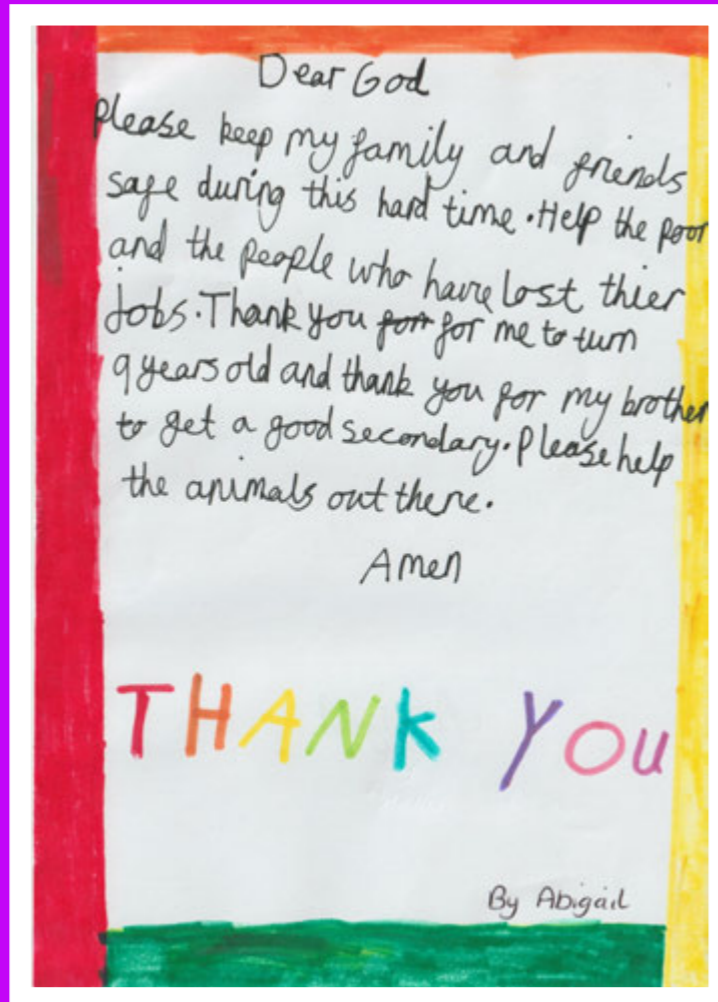 Dear God
please keep my family and friends
safe during this hard time. Help the poor
and the people who have lost thier
jobs. Thank you for me to turn
9 years old and thank you for my brother
to get a good secondary. Please help
the animals out there.
Amen
THANK YOU
By Abigail